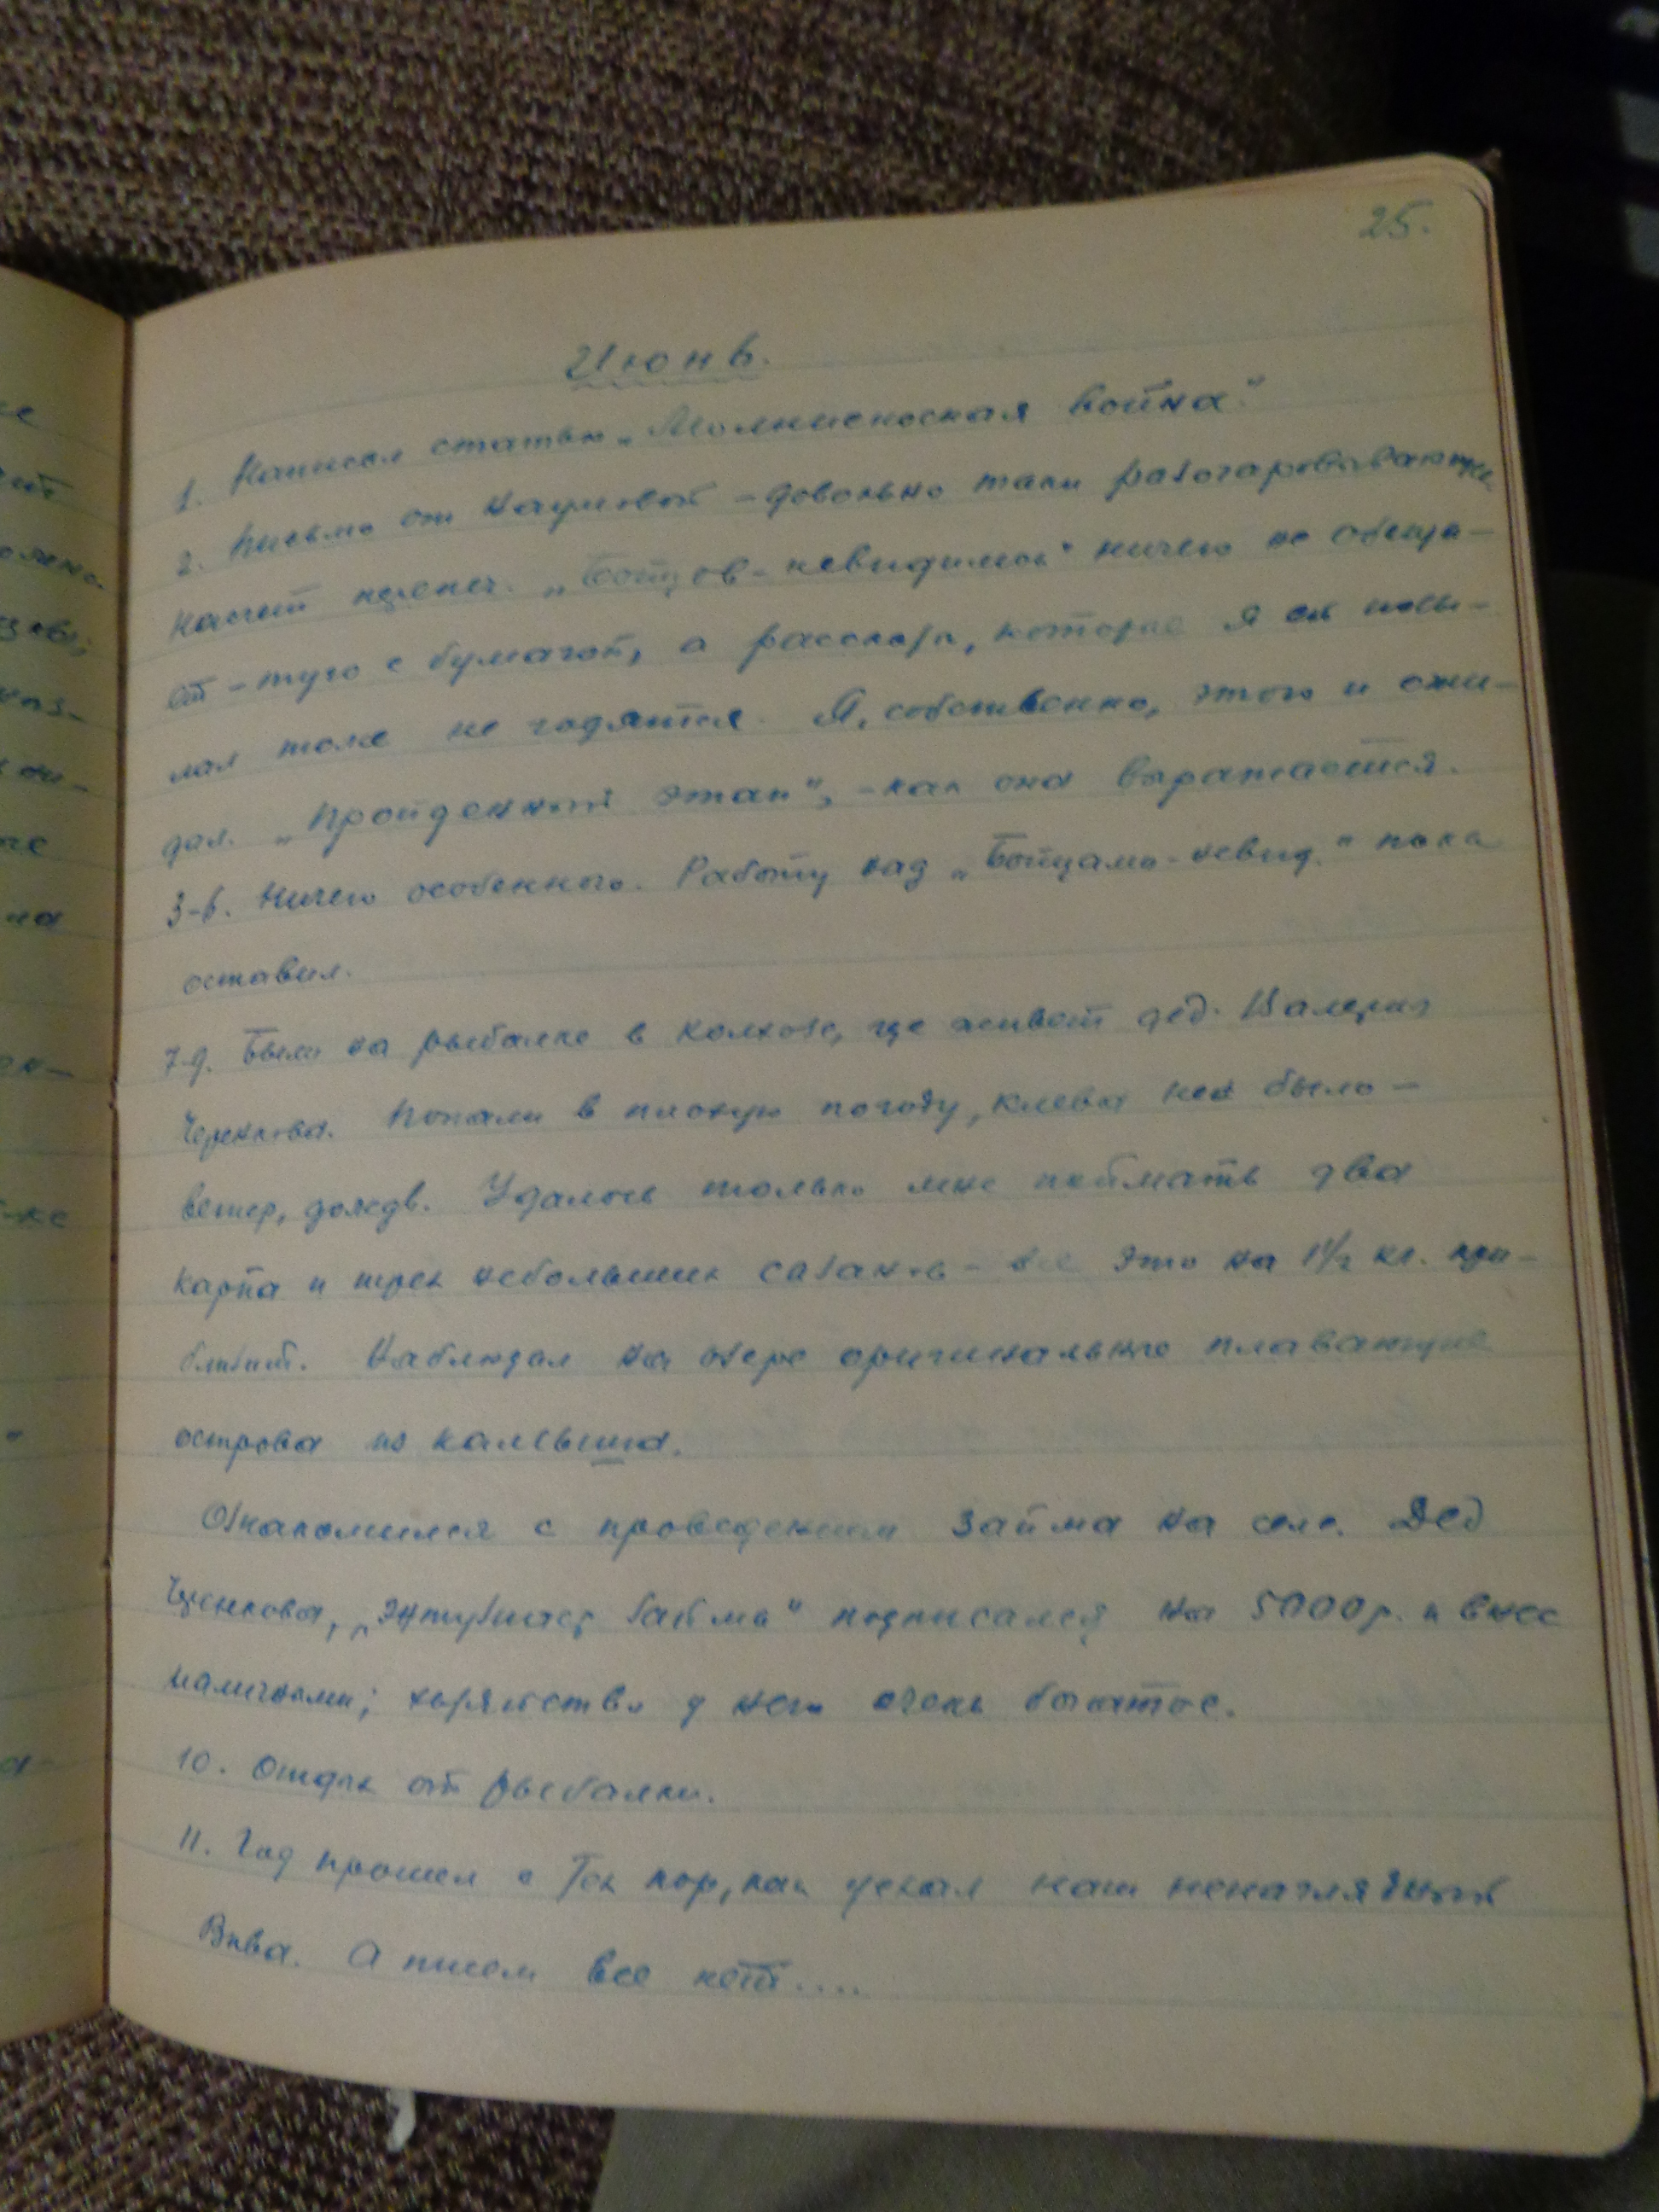 25.
Июнь.
1. Написал статью "Молниеносная война."
2. Письмо от Наумовой – довольно таки разочаровывающее.
Насчет "Бойцов-невидимок" ничего не обеща-
ет – туго с бумагой, а рассказы, которые я ей посы-
лал тоже не годятся. Я, собственно, этого и ожи-
дал. "Пройденный этап", – как она выражается.
3-6. Ничего особенного. Работу над "Бойцами-невид." пока
оставил.
7-9. Были на рыбалке в колхозе, где живет дед Валерия
Ченкова. Попали в плохую погоду, клева не было –
ветер, дождь. Удалось только мне поймать два
карпа и трех небольших сазанов – все это на 1½ кг. при-
близит. Наблюдал на озере оригинальные плавающие
острова из камыша.
Ознакомился с проведением займа на селе. Дед
"энтузиаст займа" подписался на 5000 р. и внес
наличными; хозяйство у него очень богатое.
10. Отдых от рыбалки.
11. Год прошел с тех пор, как уехал наш ненаглядный
Вова. А писем все нет....
не
на